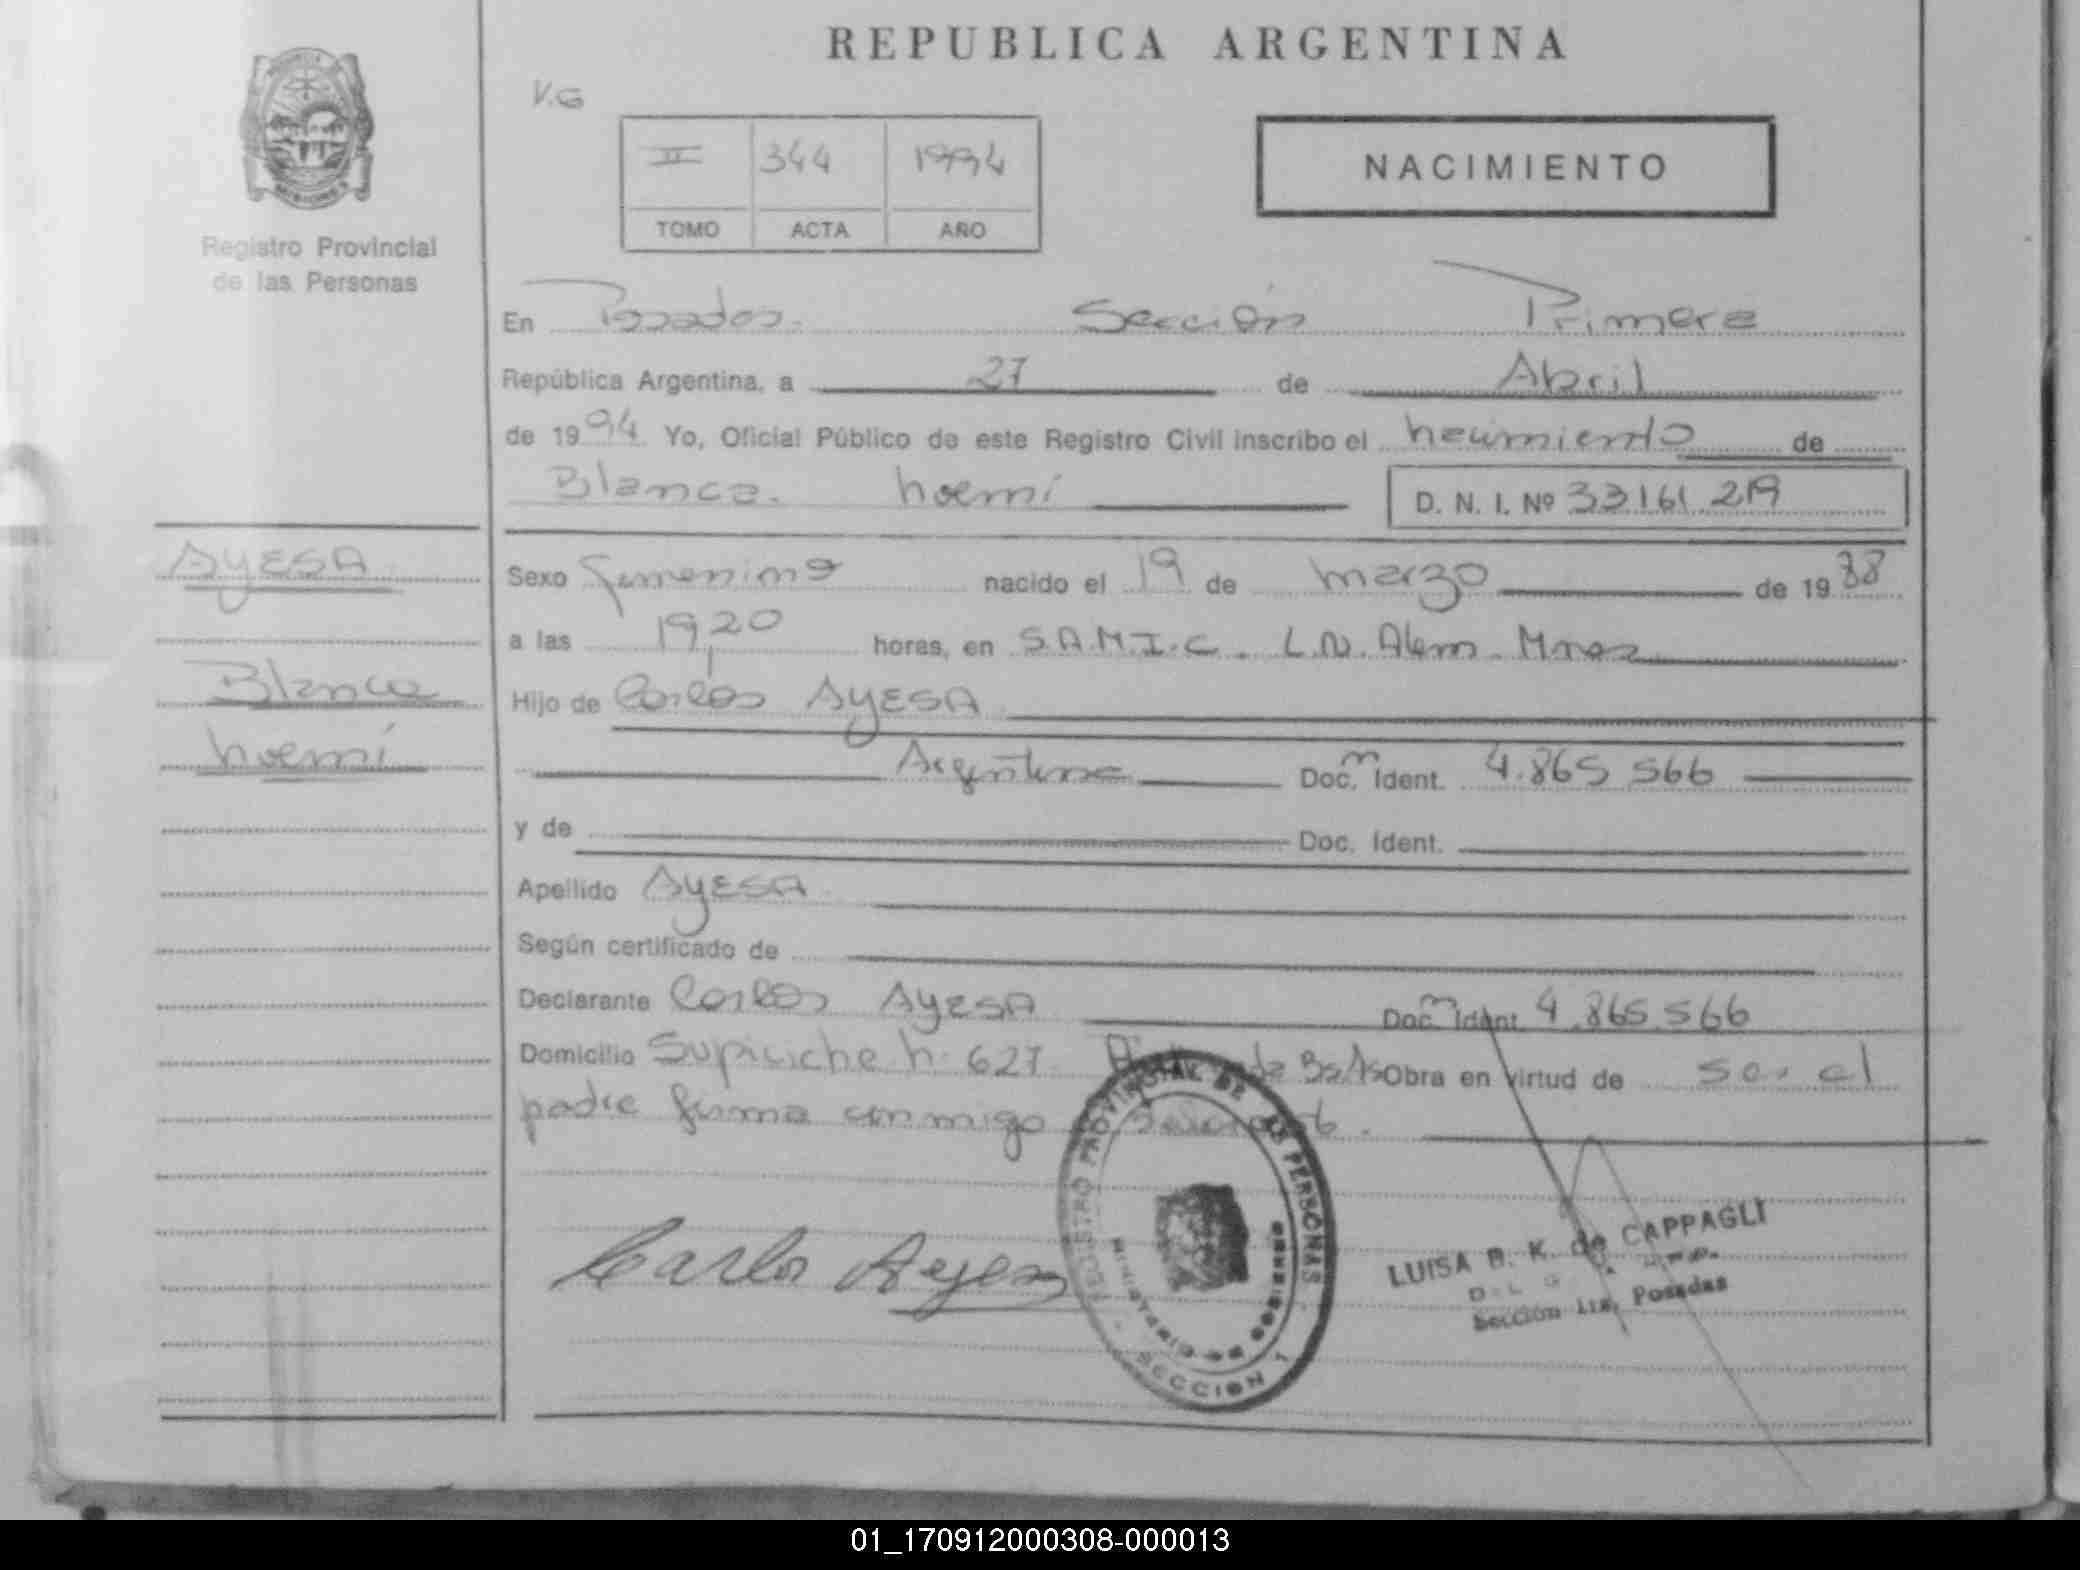 REPUBLICA ARGENTINA
V.G
II 344 1994
TOMO ACTA AÑO
NACIMIENTO
Registro Provincial
de las Personas
En Posadas. Sección Primera
República Argentina, a 27 de Abril
de 1994 Yo, Oficial Público de este Registro Civil inscribo el nacimiento de
Blanca noemí D. N. I. Nº 33161 219
AYESA
Blanca
noemí
Sexo femenino nacido el 19 de marzo de 1988
a las 19,20 horas, en S.A.M.I.C. L.N. Alem. Mnes
Hijo de Carlos AYESA
Argentina Doc. m Ident. 4.865 566
y de Doc. Ident.
Apellido AYESA
Según certificado de
Declarante Carlos AYESA Doc. m Ident. 4.865.566
Domicilio nº 627 Bs As Obra en virtud de ser el
padre firma conmigo
Carlos Ayesa
REGISTRO PROVINCIAL DE LAS PERSONAS
MINISTERIO DE GOBIERNO
SECCION 1
LUISA B. K. de CAPPAGLI
Sección 1ra. Posadas
01_170912000308-000013